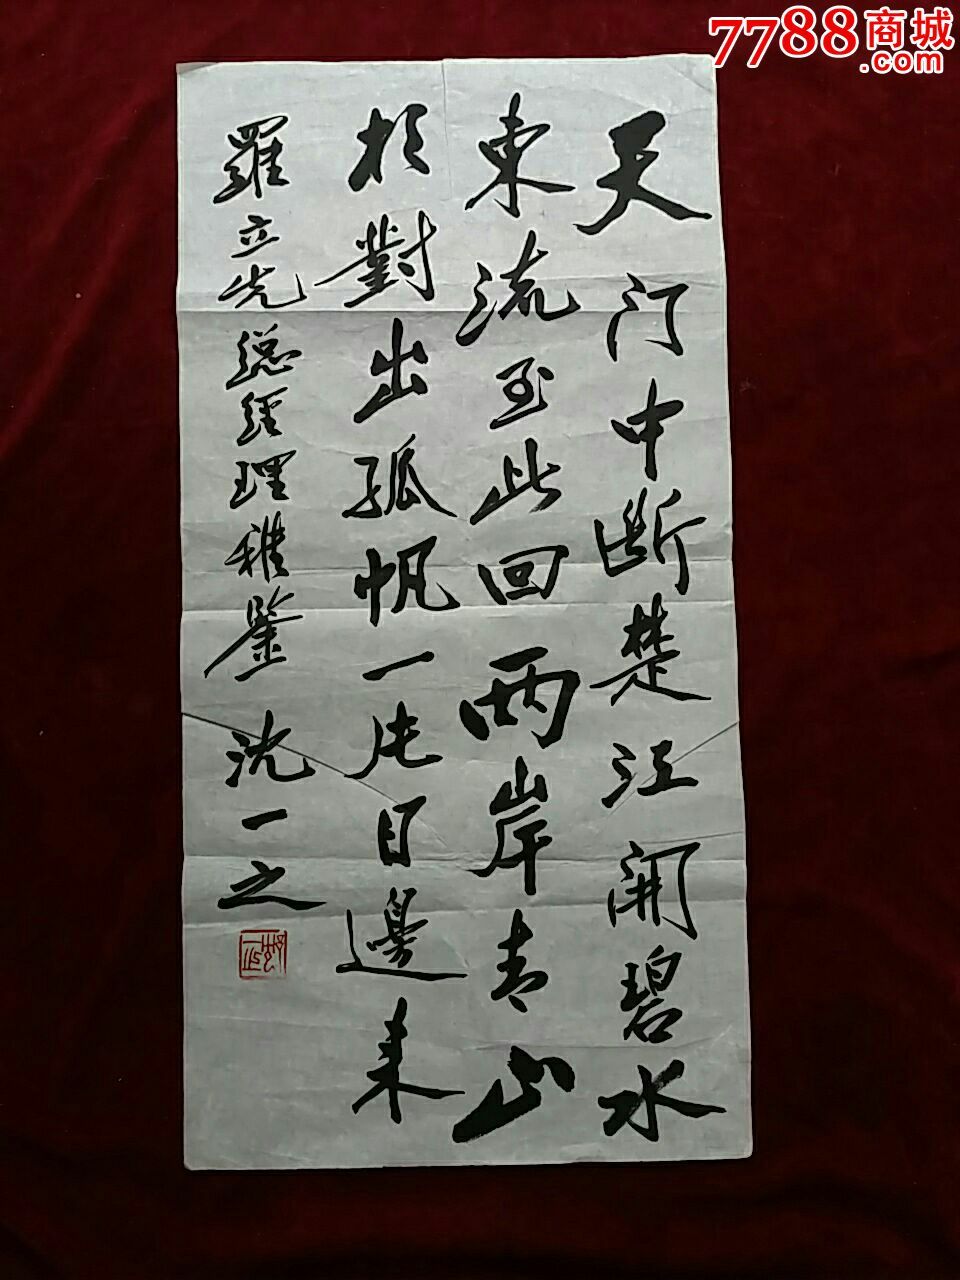 7788商城
.com
天门中断楚江開碧水
東流至此回两岸青山
相對出孤帆一片日邊来
羅立先总经理雅鑒
沈一之